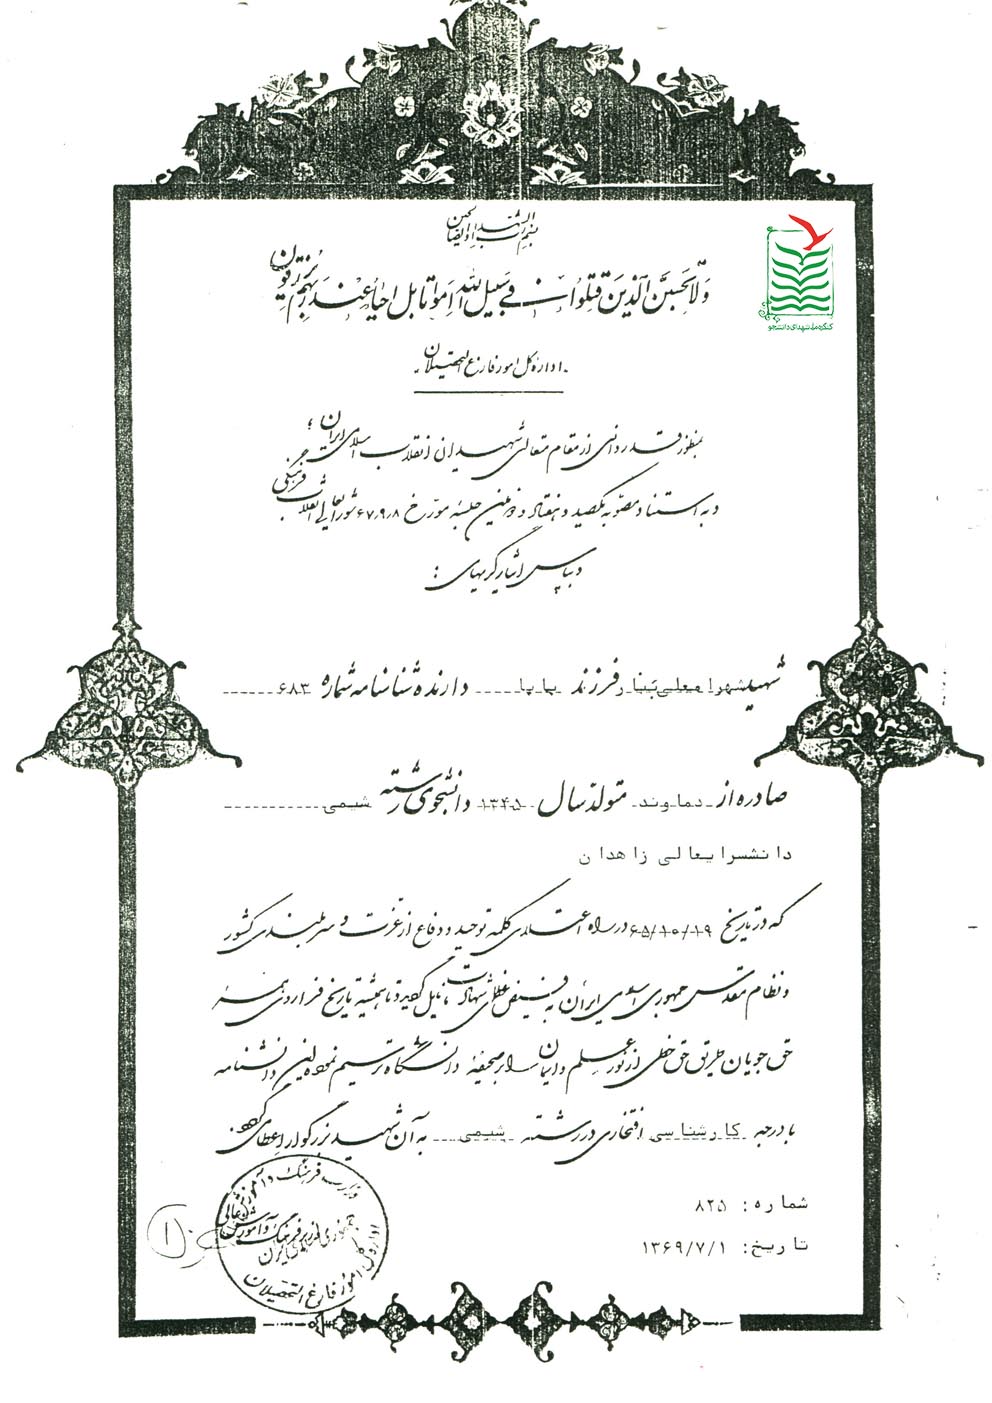 بسم رب الشهداء و الصالحین
ولا تحسبن الذین قتلوا فی سبیل الله امواتا بل احیاء عند ربهم یرزقون
کنگره ملی شهدای دانشجو
اداره کل امور فارغ التحصیلان
بمنظور قدردانی از مقام متعالی شهیدان انقلاب اسلامی ایران ؛
و به استناد مصوبه یکصد و هفتاد و دومین جلسه مورخ ۶۷/۹/۸ شورایعالی انقلاب فرهنگی
و بپاس ایثارگریهای :
شهید شهرا معلی بنا ر فرزند بابا دارنده شناسنامه شماره ۶۸۳
صادره از دماوند متولد سال ۱۳۴۵ دانشجوی رشته شیمی
دانشسرایعالی زاهدان
که در تاریخ ۶۵/۱۰/۱۹ در راه اعتلای کلمه توحید و دفاع از عزت و سربلندی کشور
و نظام مقدس جمهوری اسلامی ایران به فیض عظمای شهادت نایل گردید تا همیشه تاریخ فرا روی همه
حق جویان طریق حق خطی از نور علم و ایمان را بر صحیفه دانشگاه ترسیم نموده این دانشنامه
با درجه کارشناسی افتخاری در رشته شیمی به آن شهید بزرگوار اعطا میگردد.
شماره: ۸۲۵
تاریخ: ۱۳۶۹/۷/۱
وزارت فرهنگ و آموزش عالی
جمهوری اسلامی ایران
اداره کل امور فارغ التحصیلان